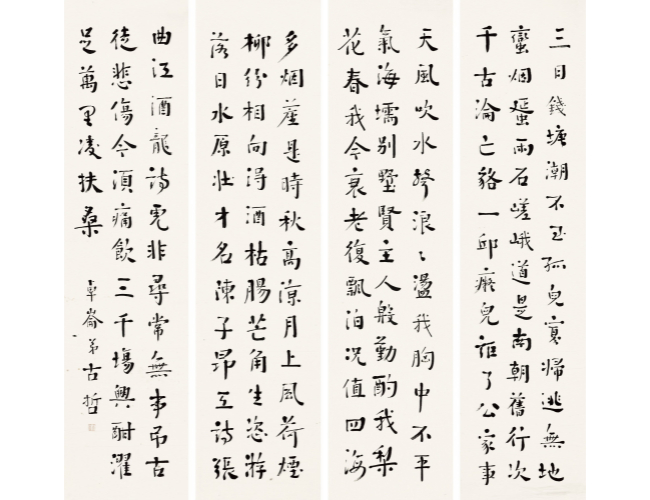 三日錢塘潮不至孤兒寡婦逃無地
蠻烟蜑雨石嵯峨道是南朝舊行次
千古淪亡貉一邱癡兒誰了公家事
天風吹水聲浪浪盪我胸中不平
氣海壖別墅賢主人殷勤酌我梨
花春我今衰老復飄泊况值四海
多烟塵是時秋高涼月上風荷煙
柳紛相向得酒枯腸芒角生恣游
落日水原壯才名陳子昂工詩張
曲江酒龍詩虎非尋常無事弔古
徒悲傷今須痛飲三千場興酣濯
足萬里凌扶桑
卓崙弟古哲